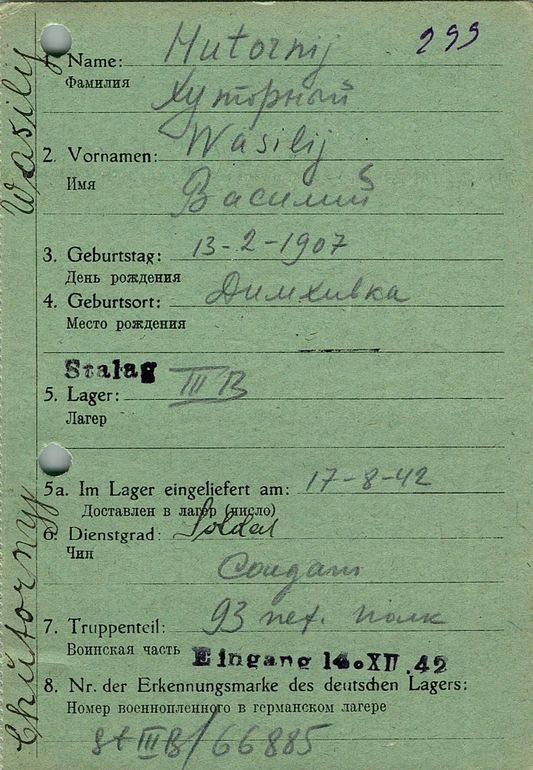 299
1. Name: Hutornij
Фамилия
Хуторный
Wasilij
2. Vornamen:
Имя
Василий
3. Geburtstag: 13-2-1907
День рождения
4. Geburtsort: Димхивка
Место рождения
Stalag
5. Lager: III B
Лагер
5a. Im Lager eingeliefert am: 17-8-42
Доставлен в лагер (число)
6. Dienstgrad: Soldat
Чин
Солдат
7. Truppenteil: 93 пех. полк
Воинская часть
Eingang 14. XII. 42
8. Nr. der Erkennungsmarke des deutschen Lagers:
Номер военнопленного в германском лагере
St III B/66885
Chutornyj Wasilij